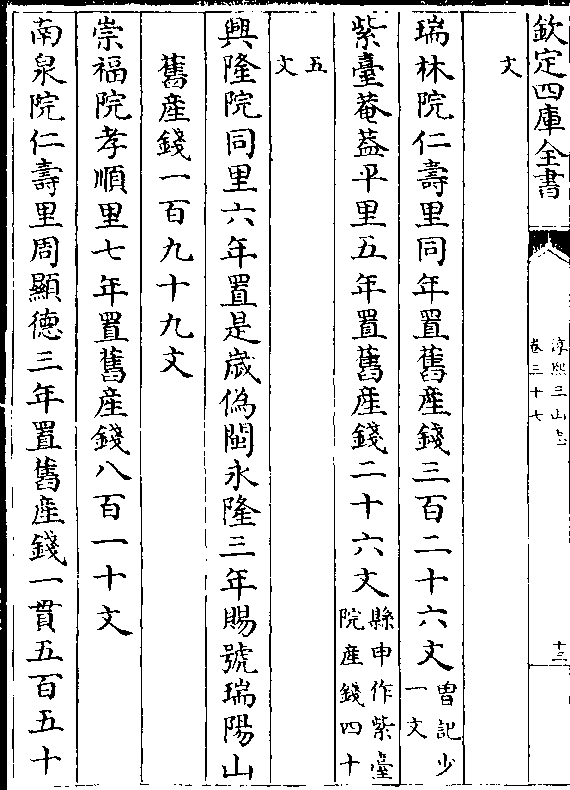 欽定四庫全書
淳熙三山志
卷三十七
十三
文
瑞林院仁壽里同年置舊產錢三百二十六文曽記少一文
紫臺菴葢平里五年置舊產錢二十六文縣申作紫臺院產錢四十
五文
興隆院同里六年置是歲偽閩永隆三年賜號瑞陽山
舊產錢一百九十九文
崇福院孝順里七年置舊產錢八百一十文
南泉院仁壽里周顯德三年置舊產錢一貫五百五十